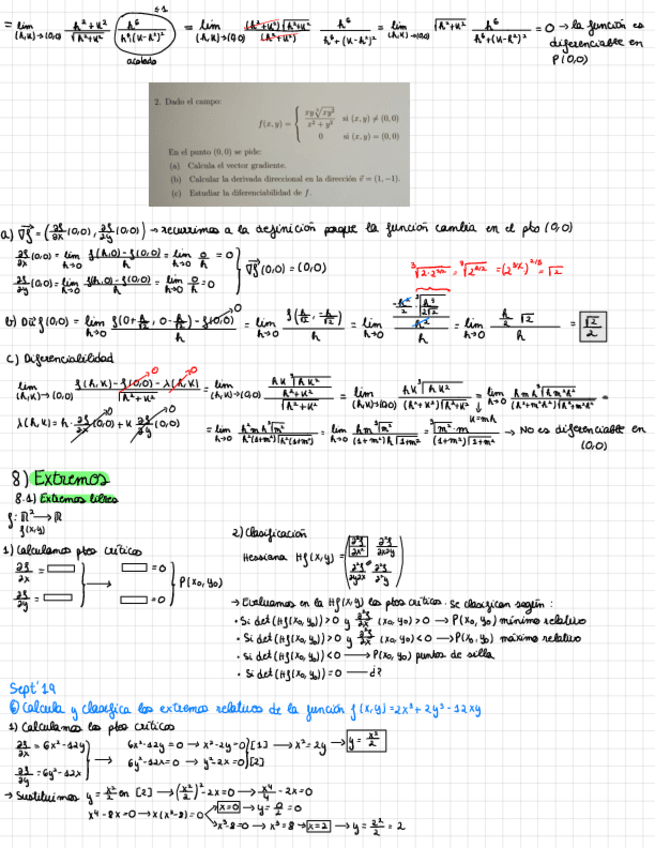 = lim (h,k)→(0,0) h²+k² / √h²+k² · h⁶ / h⁶+(k-h²)² ≤1 = lim (h,k)→(0,0) (h²+k²)√h²+k² / (h²+k²) · h⁶ / h⁶+(k-h²)² = lim (h,k)→(0,0) √h²+k² · h⁶ / h⁶+(k-h²)² = 0 → la función es
acotado
diferenciable en
P(0,0)
2. Dado el campo:
f(x, y) = { xy∛xy² / x² + y² si (x, y) ≠ (0, 0)
0 si (x, y) = (0, 0)
En el punto (0, 0) se pide:
(a) Calcula el vector gradiente.
(b) Calcular la derivada direccional en la dirección v⃗ = (1, −1).
(c) Estudiar la diferenciabilidad de f.
a) ∇f = (∂f/∂x (0,0), ∂f/∂y (0,0)) → recurrimos a la definición porque la función cambia en el pto (0,0)
∂f/∂x (0,0) = lim h→0 f(h,0)-f(0,0) / h = lim h→0 0/h = 0
∂f/∂y (0,0) = lim h→0 f(h,0)-f(0,0) / h = lim h→0 0/h = 0
∇f (0,0) = (0,0)
b) f(0,0) = lim h→0 f(0+h/√2, 0-h/√2) - f(0,0) / h = lim h→0 f(h/√2, -h/√2) / h = lim h→0 = lim h→0 h/2 √2 / h = √2/2
c) Diferenciabilidad
lim (h,k)→(0,0) f(h,k)-f(0,0)-λ(h,k) / √h²+k² = lim (h,k)→(0,0) hk∛hk² / h²+k² / √h²+k² = lim (h,k)→(0,0) hk∛hk² / (h²+k²)√h²+k² = lim h→0 hmh∛hm²h² / (h²+m²h²)√h²+m²h² =
k=mh
λ(h,k) = h · ∂f/∂x (0,0) + k ∂f/∂y (0,0)
= lim h→0 h²mh∛m² / h²(1+m²)√h²(1+m²) = lim h→0 hm∛m² / (1+m²)h√1+m² = ∛m² · m / (1+m²)√1+m² → No es diferenciable en
(0,0)
8) Extremos
8.1) Extremos libres
f: ℝ² → ℝ
f(x,y)
1) Calculamos ptos críticos
∂f/∂x = → = 0
∂f/∂y = → = 0
P(x₀,y₀)
2) Clasificación
Hessiana Hf(x,y) = (∂²f/∂x² ∂²f/∂x∂y
∂²f/∂y∂x ∂²f/∂²y)
→ Evaluamos en la Hf(x,y) los ptos críticos. Se clasifican según:
• Si det(Hf(x₀,y₀))>0 y ∂²f/∂x (x₀,y₀)>0 → P(x₀,y₀) mínimo relativo
• Si det(Hf(x₀,y₀))>0 y ∂²f/∂x (x₀,y₀)<0 → P(x₀,y₀) máximo relativo
• Si det(Hf(x₀,y₀))<0 → P(x₀,y₀) puntos de silla
• Si det(Hf(x₀,y₀))=0 → ¿?
Sept' 19
6) Calcula y clasifica los extremos relativos de la función f(x,y)=2x³+2y³-12xy
1) Calculamos los ptos críticos
∂f/∂x = 6x²-12y → 6x²-12y=0 → x²-2y=0 [1] → x²=2y → y = x²/2
∂f/∂y = 6y²-12x → 6y²-12x=0 → y²-2x=0 [2]
→ Sustituimos y = x²/2 en [2] → (x²/2)² -2x=0 → x⁴/4 - 2x=0
x⁴-8x=0 → x(x³-8)=0 x=0 → y = 0/2 = 0
x³-8=0 → x³=8 → x=2 → y = 2²/2 = 2